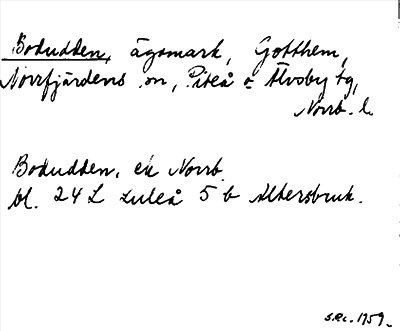 Bodudden, ägomark, Gotthem,
Norrfjärdens sn, Piteå o Älvsby tg,
Norrb. l.
Bodudden, ek Norrb.
bl. 24 L Luleå 5 b Altersbruk.
S.Rc. 1959.